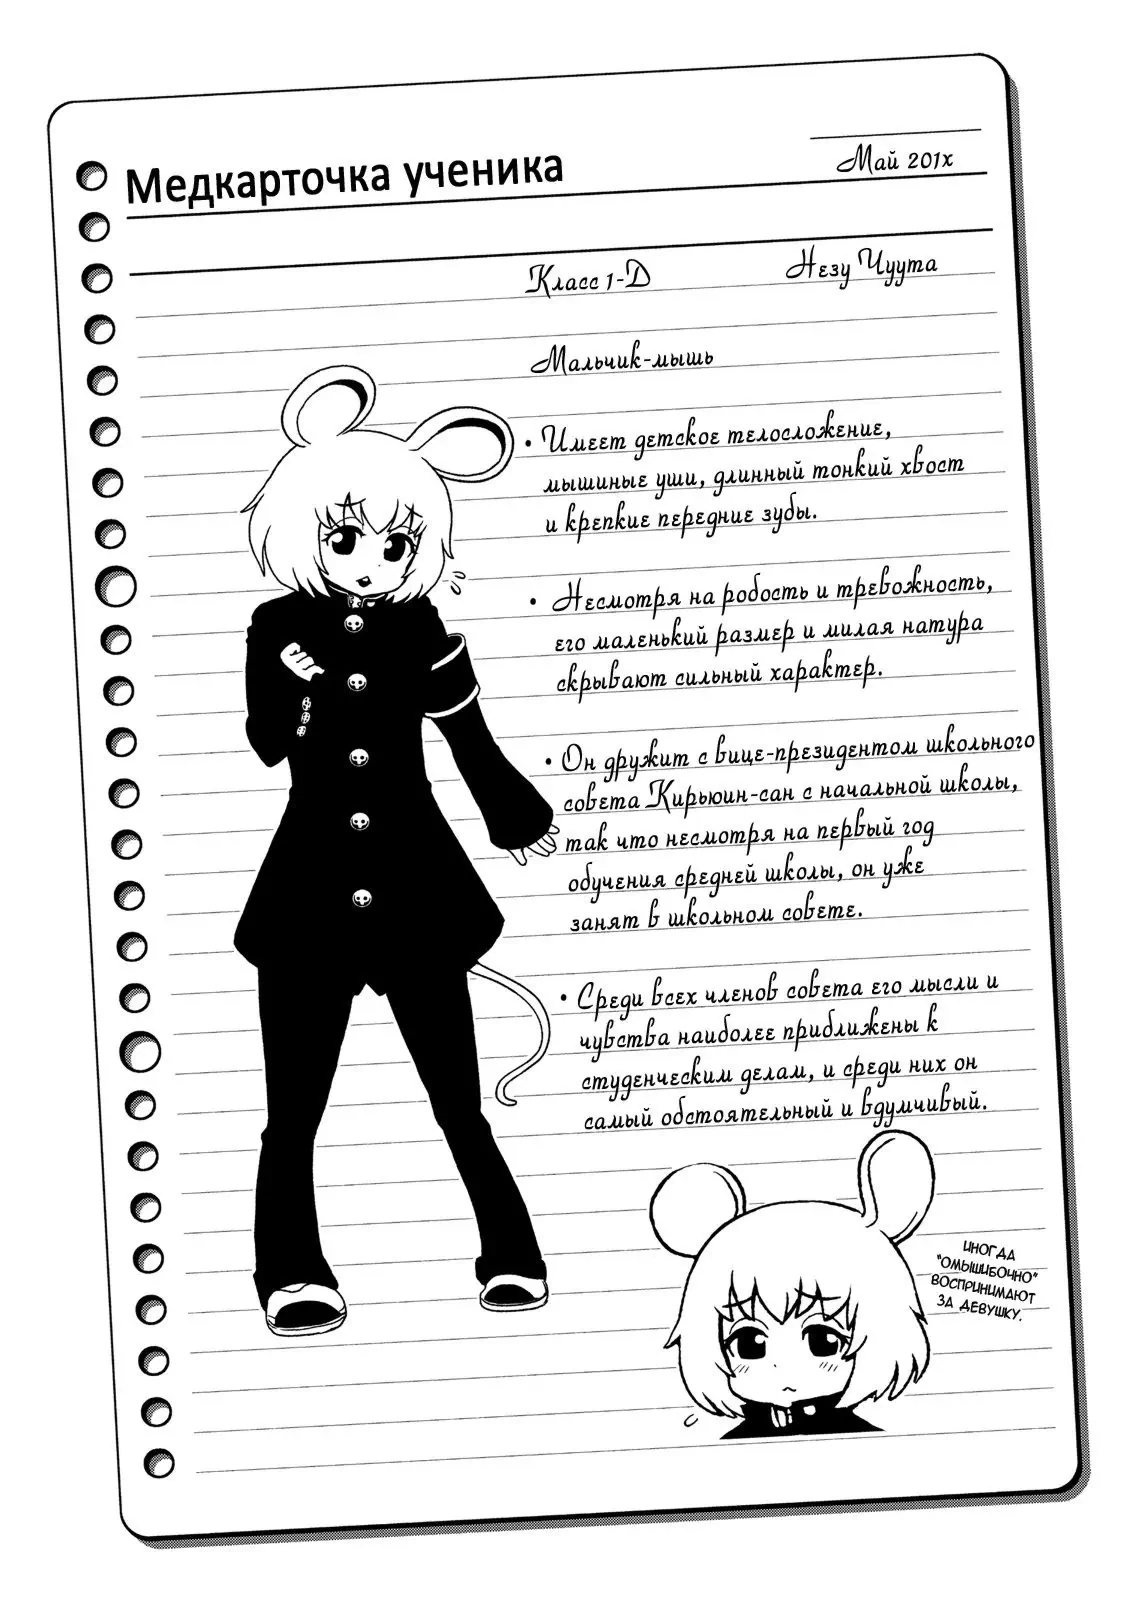 Медкарточка ученика
Май 201х
Класс 1-Д
Незу Чуута
Мальчик-мышь
• Имеет детское телосложение,
мышиные уши, длинный тонкий хвост
и крепкие передние зубы.
• Несмотря на робость и тревожность,
его маленький размер и милая натура
скрывают сильный характер.
• Он дружит с вице-президентом школьного
совета Кирьюин-сан с начальной школы,
так что несмотря на первый год
обучения средней школы, он уже
занят в школьном совете.
• Среди всех членов совета его мысли и
чувства наиболее приближены к
студенческим делам, и среди них он
самый обстоятельный и вдумчивый.
ИНОГДА
"ОМЫШИБОЧНО"
ВОСПРИНИМАЮТ
ЗА ДЕВУШКУ.